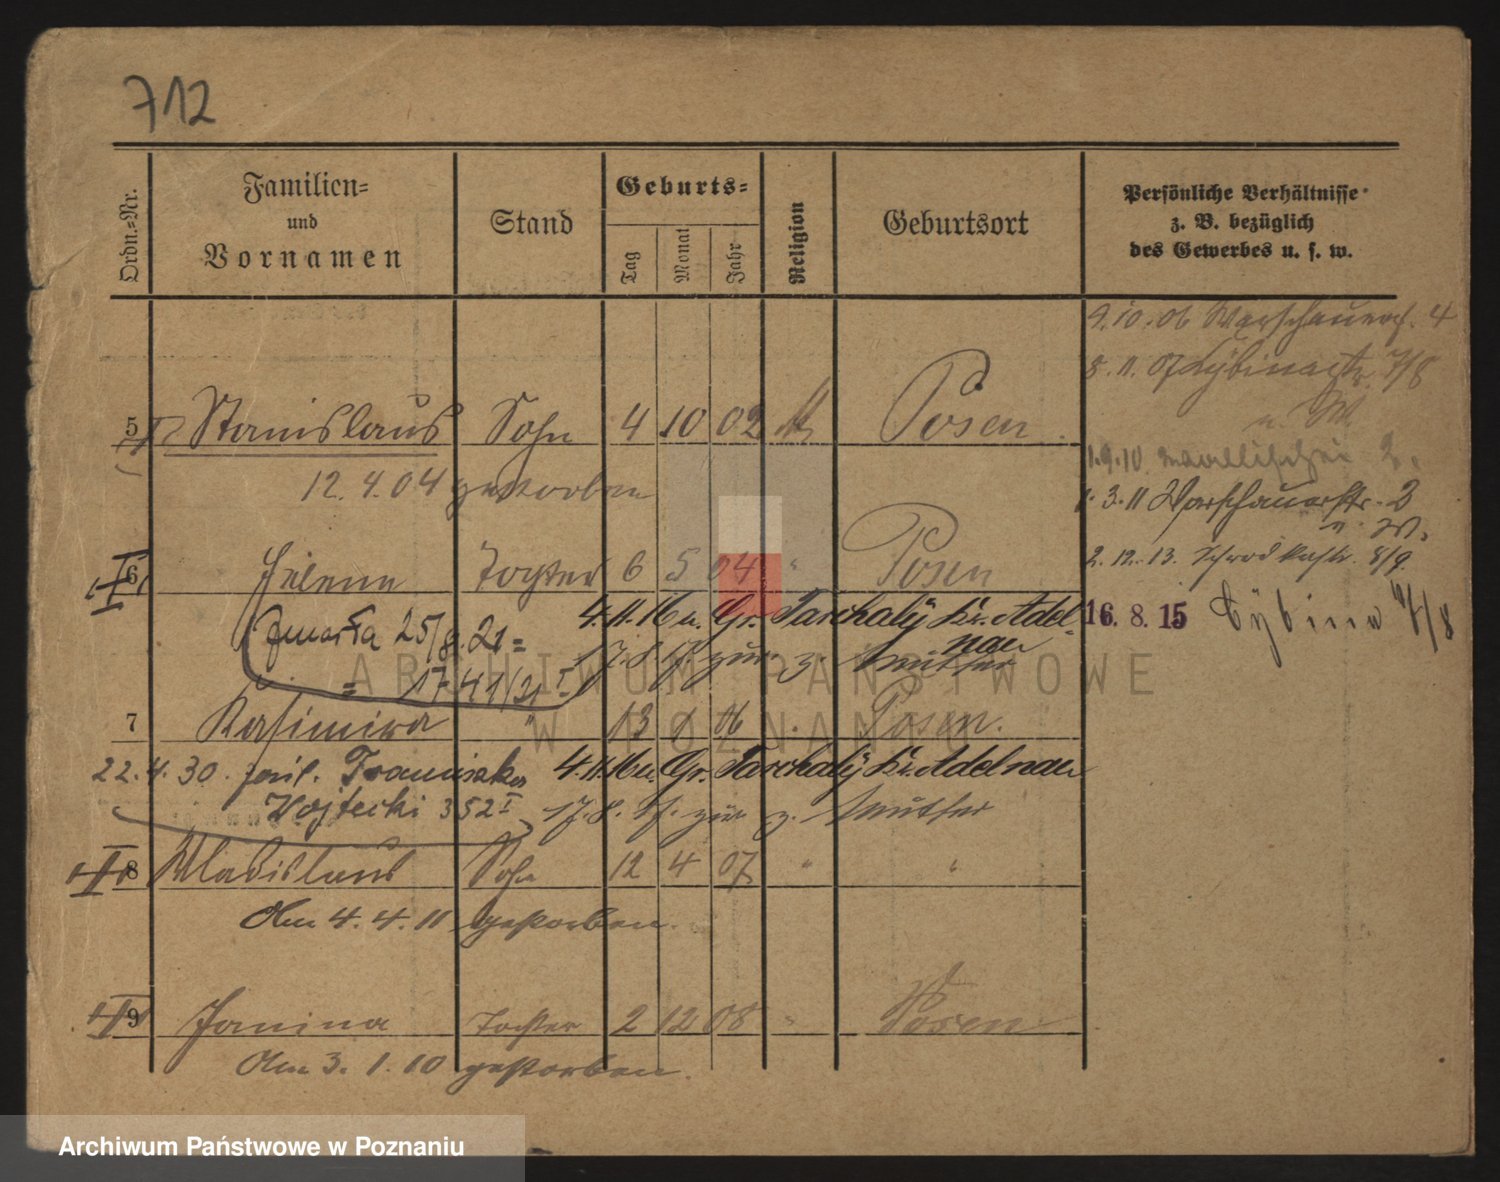 712
Ordn.=Nr.
Familien=
und
Vornamen
Stand
Geburts=
Tag
Monat
Jahr
Religion
Geburtsort
Persönliche Verhältnisse
z. B. bezüglich
des Gewerbes u. s. w.
9.10.06 Warschauerstr. 4
8.11.07 Cybinastr. 7/8
u. W.
5 Stanislaus Sohn 4 10 02 Posen
1.9.10 2.
12.4.04 gestorben
1.3.11 Warschauerstr. 2
u. W.
6 Helene Tochter 6 5 04 " Posen
2.12.13. 8/9.
Zmarła 25/8.21 = 4.11.16 u. Gr. Tarchaly Kr. Adel-
nau
16. 8. 15 Cybina 7/8
= 1741/21 I 17.8.17 zur z. Mutter
7 Kasimira " 13 1 06 " Posen.
22.4.30. Franciszka 4.11.16 u. Gr. Tarchaly Kr. Adelnau
Wojtecki 352 I 17.8.17. zur z. Mutter
8 Wladislaus Sohn 12 4 07 " "
Am 4.4.11 gestorben.
9 Janina Tochter 2 12 08 " Posen
Am 3.1.10 gestorben.
ARCHIWUM PAŃSTWOWE
W POZNANIU
Archiwum Państwowe w Poznaniu